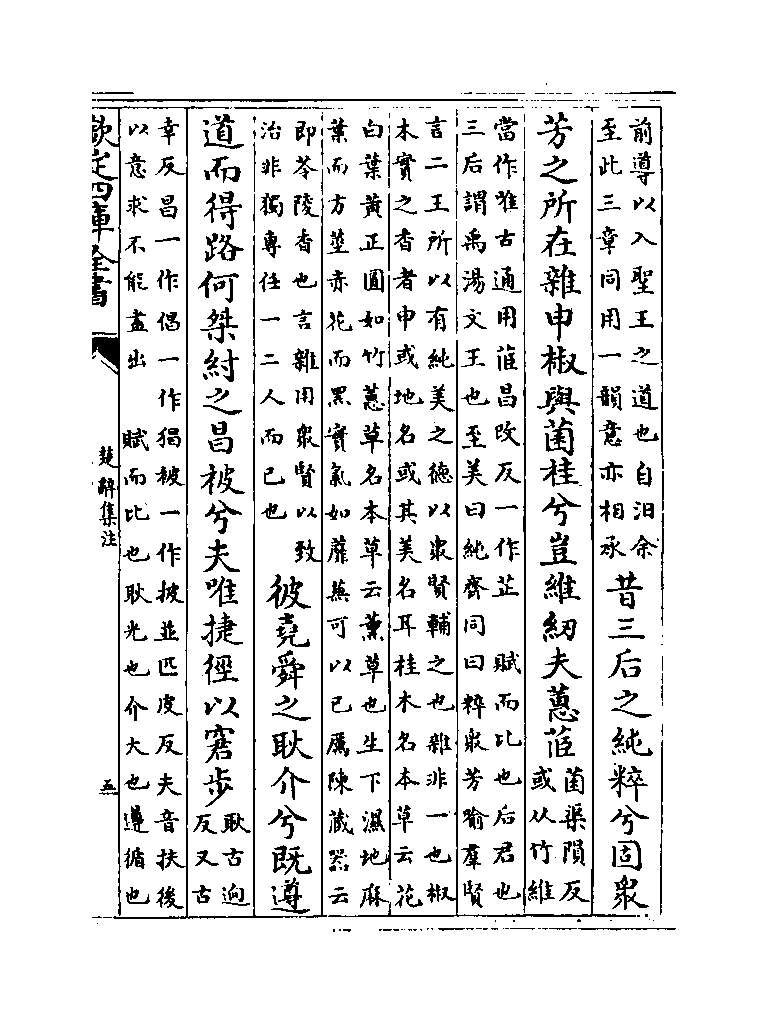 前導以入聖王之道也自汨余
至此三章同用一韻意亦相承
昔三后之純粹兮固衆
芳之所在雜申椒與菌桂兮豈維紉夫蕙茝
菌渠隕反
或从竹維
當作唯古通用茝昌改反一作芷　賦而比也后君也
三后謂禹湯文王也至美曰純齊同曰粹衆芳喻羣賢
言二王所以有純美之德以衆賢輔之也雜非一也椒
木實之香者申或地名或其美名耳桂木名本草云花
白葉黄正圓如竹蕙草名本草云薰草也生下濕地麻
葉而方莖赤花而黒實氣如蘼蕪可以已厲陳藏器云
即苓陵香也言雜用衆賢以致
治非獨專任一二人而已也
彼堯舜之耿介兮既遵
道而得路何桀紂之昌被兮夫唯捷徑以窘步
耿古迥
反又古
幸反昌一作倡一作猖被一作披並匹皮反夫音扶後
以意求不能盡出　賦而比也耿光也介大也遵循也
欽定四庫全書
楚辭集注
五